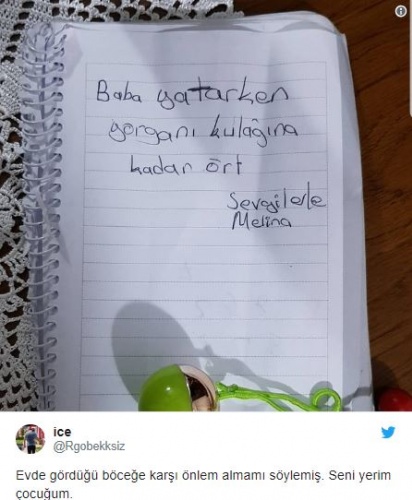 Baba yatarken
yorganı kulağına
kadar ört
Sevgilerle
Melina
ice
@Rgobekksiz
Evde gördüğü böceğe karşı önlem almamı söylemiş. Seni yerim
çocuğum.